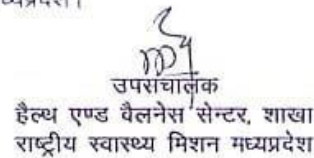 ध्यप्रदेश।
उपसंचालक
हैल्थ एण्ड वैलनेस सेन्टर, शाखा
राष्ट्रीय स्वास्थ्य मिशन मध्यप्रदेश